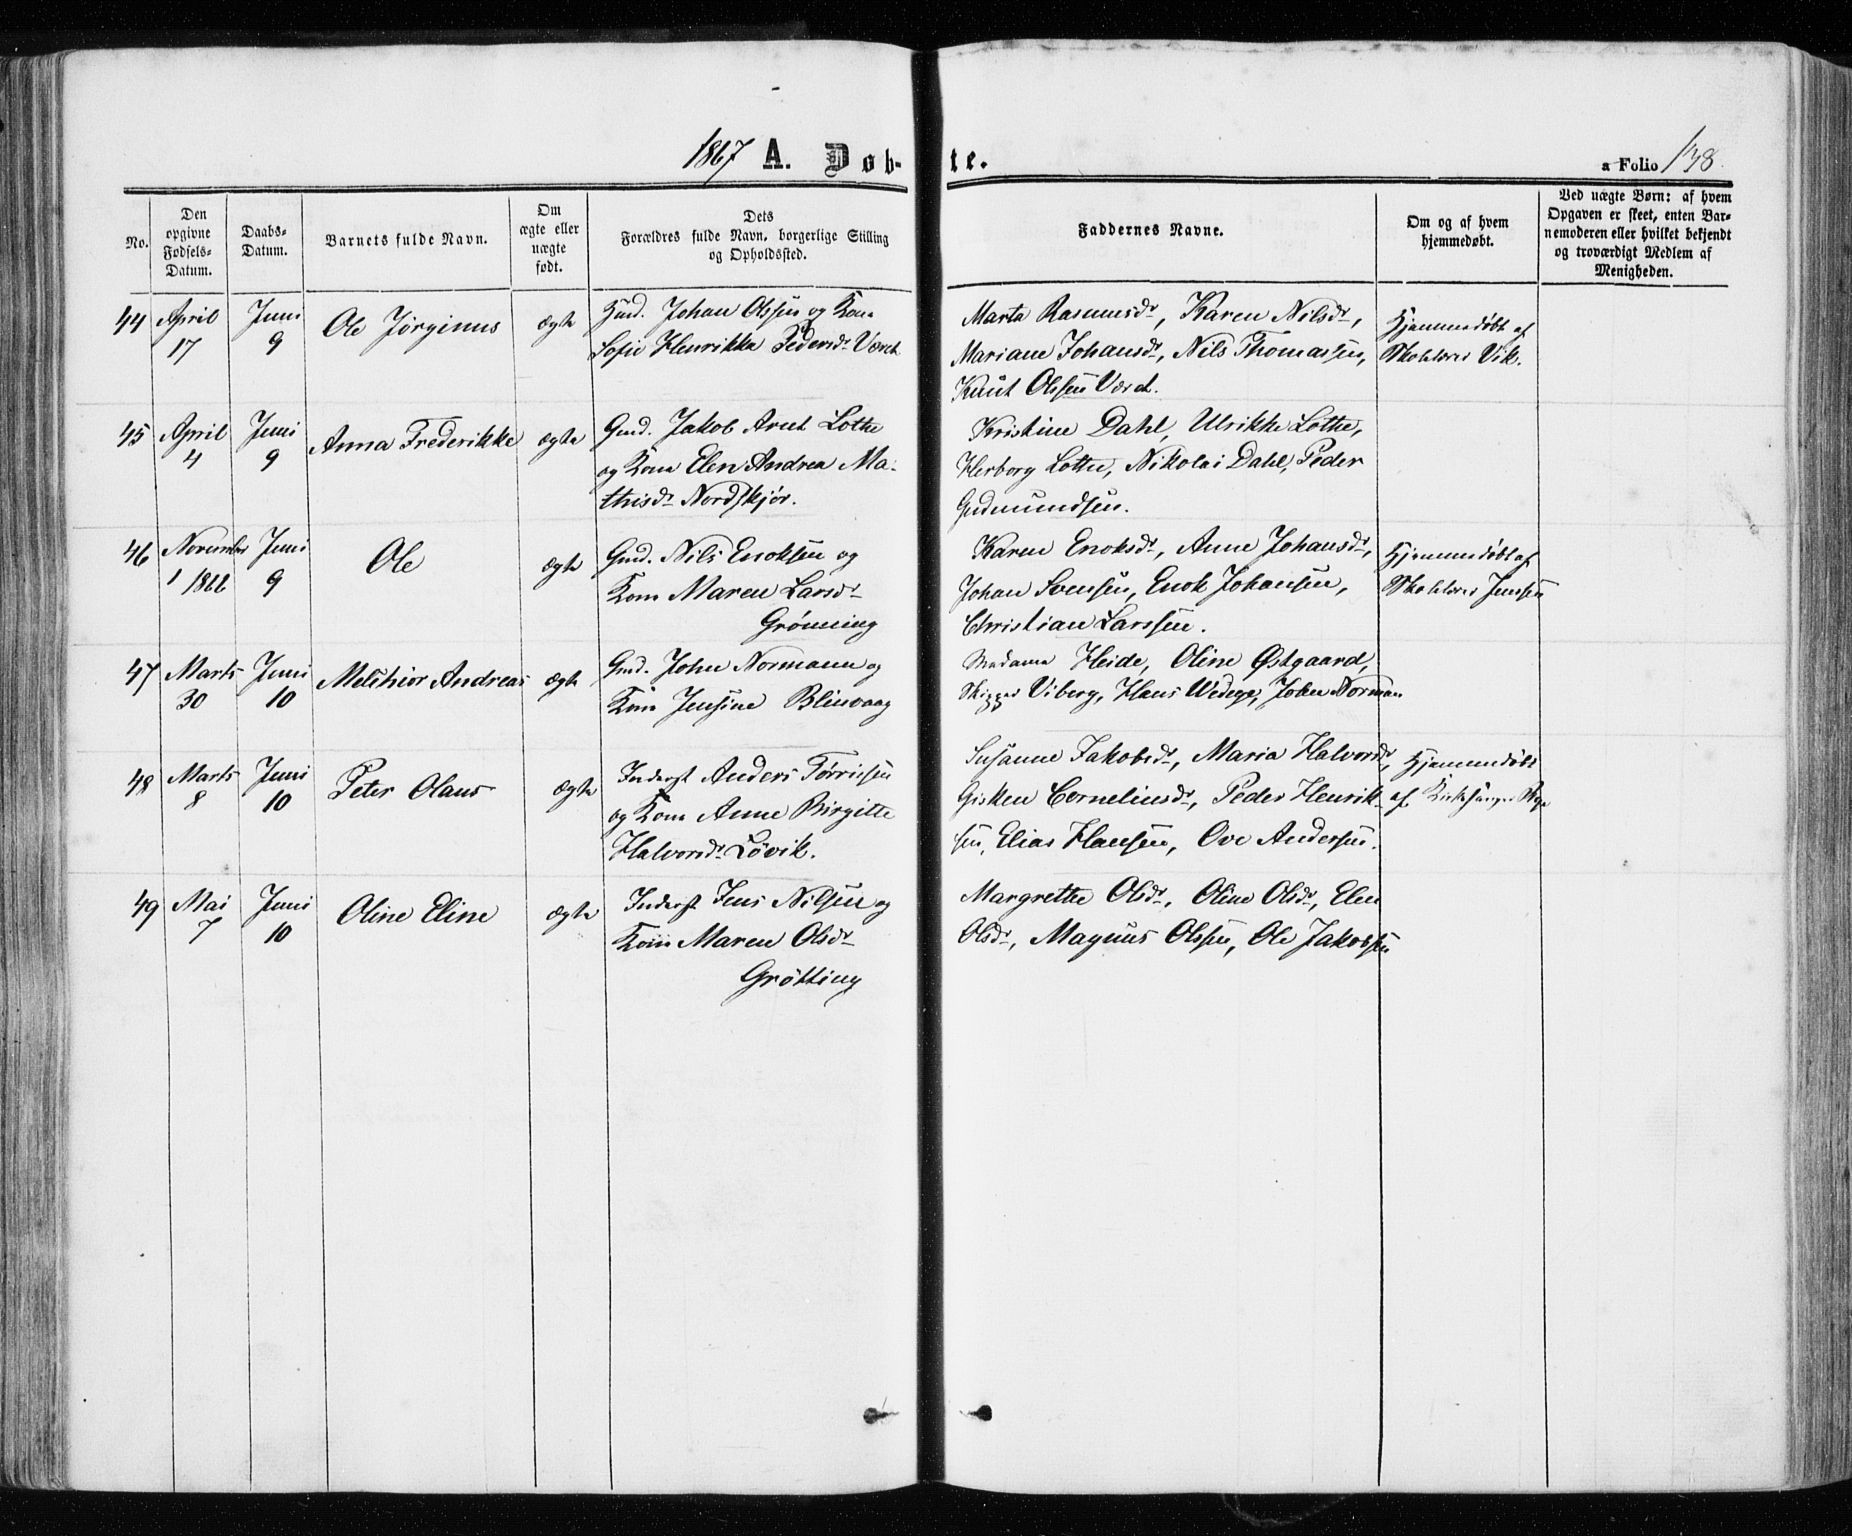 1867 A. Døbte.
a Folio 138.
No.
Den opgivne Fødsels-Datum.
Daabs-Datum.
Barnets fulde Navn.
Om ægte eller uægte født.
Dets Forældres fulde Navn, borgerlige Stilling og Opholdssted.
Faddernes Navne.
Om og af hvem hjemmedøbt.
Ved uægte Børn: af hvem Opgaven er skeet, enten Barnemoderen eller hvilket bekjendt og troværdigt Medlem af Menigheden.
44 April 17 Juni 9 Ole Jørginus ægte
Johan Olssen og Kone
Sofie Henrikka Pedersdr Været
Marta Rasmusdr, Karen Nilsdr,
Mariane Johansdr, Nils Thomassen,
Knut Olssen Været.
Hjemmedøbt af
Skolelærer Vik.
45 April 4 Juni 9 Anna Frederikke ægte
Gmd. Jakob Arnt Lothe
og Kone Elen Andrea Ma-
thisdr Nordskjør.
Kristine Dahl, Ulrikke Lothe,
Herborg Lothe, Nikolai Dahl, Peder
Gudmundsen.
46 November 1 1866 Juni 9 Ole ægte
Gmd. Nils Enoksen og
Kone Maren Larsdr
Grønning
Karen Enoksdr, Anne Johansdr,
Johan Svensen, Enok Johansen,
Christian Larssen.
Hjemmedøbt af
Skolelærer Jensen
47 Marts 30 Juni 10 Melchior Andreas ægte
Gmd. John Normann og
Kone Jensine Blinvaag
Madame Heide, Oline Østgaard,
Skipper Viberg, Hans Wedege, John Norman
48 Marts 8 Juni 10 Peter Olaus ægte
Inderst Anders Tørrissen
og Kone Anne Birgitte
Halvorsdr Løvik.
Susanne Jakobsdr, Maria Halvorsdr,
Gisken Corneliusdr, Peder Henrik-
sen, Elias Hansen, Ove Andersen.
Hjemmedøbt
af Kirkesanger
49 Mai 7 Juni 10 Oline Eline ægte
Inderst Jens Nilsen og
Kone Maren Olsdr
Grøtting
Margrethe Olsdr, Oline Olsdr, Elen
Olsdr, Magnus Olssen, Ole Jakobsen